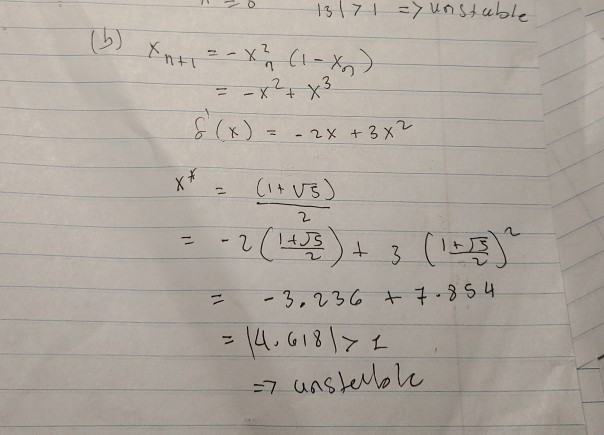 |3| > 1 => unstable
(b) x_{n+1} = -x_n^2 (1 - x_n)
= -x^2 + x^3
f'(x) = -2x + 3x^2
x* = (1+√5)/2
= -2 ((1+√5)/2) + 3 ((1+√5)/2)^2
= -3.236 + 7.854
= |4.618| > 1
=> unstable